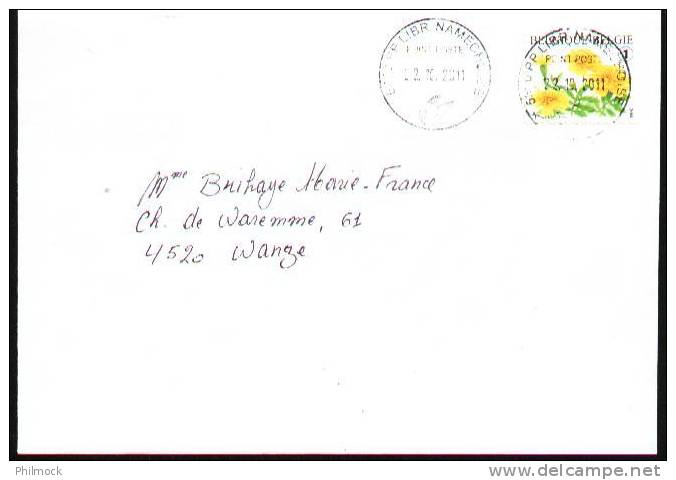 LIBR NAMECHOISE
BELGIQUE-BELGIE
1
POINT POSTE
22.10.2011
Mme Brihaye Marie-France
Ch. de Waremme, 61
4520 Wanze
Philmock
www.delcampe.net